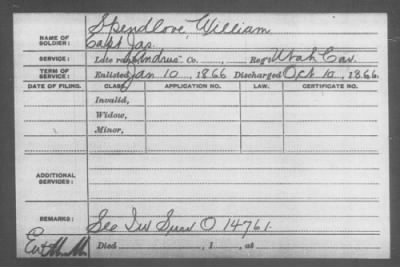 NAME OF SOLDIER: Spendlove, William
Capt Jas.
SERVICE: Late rank, Andrus Co. , Reg't Utah Cav.
TERM OF SERVICE: Enlisted Jan 10, 1866 Discharged Oct 10, 1866.
DATE OF FILING. CLASS. APPLICATION NO. LAW. CERTIFICATE NO.
Invalid,
Widow,
Minor,
ADDITIONAL SERVICES:
REMARKS: See Inv Surv O 14761.
Died , 1 , at